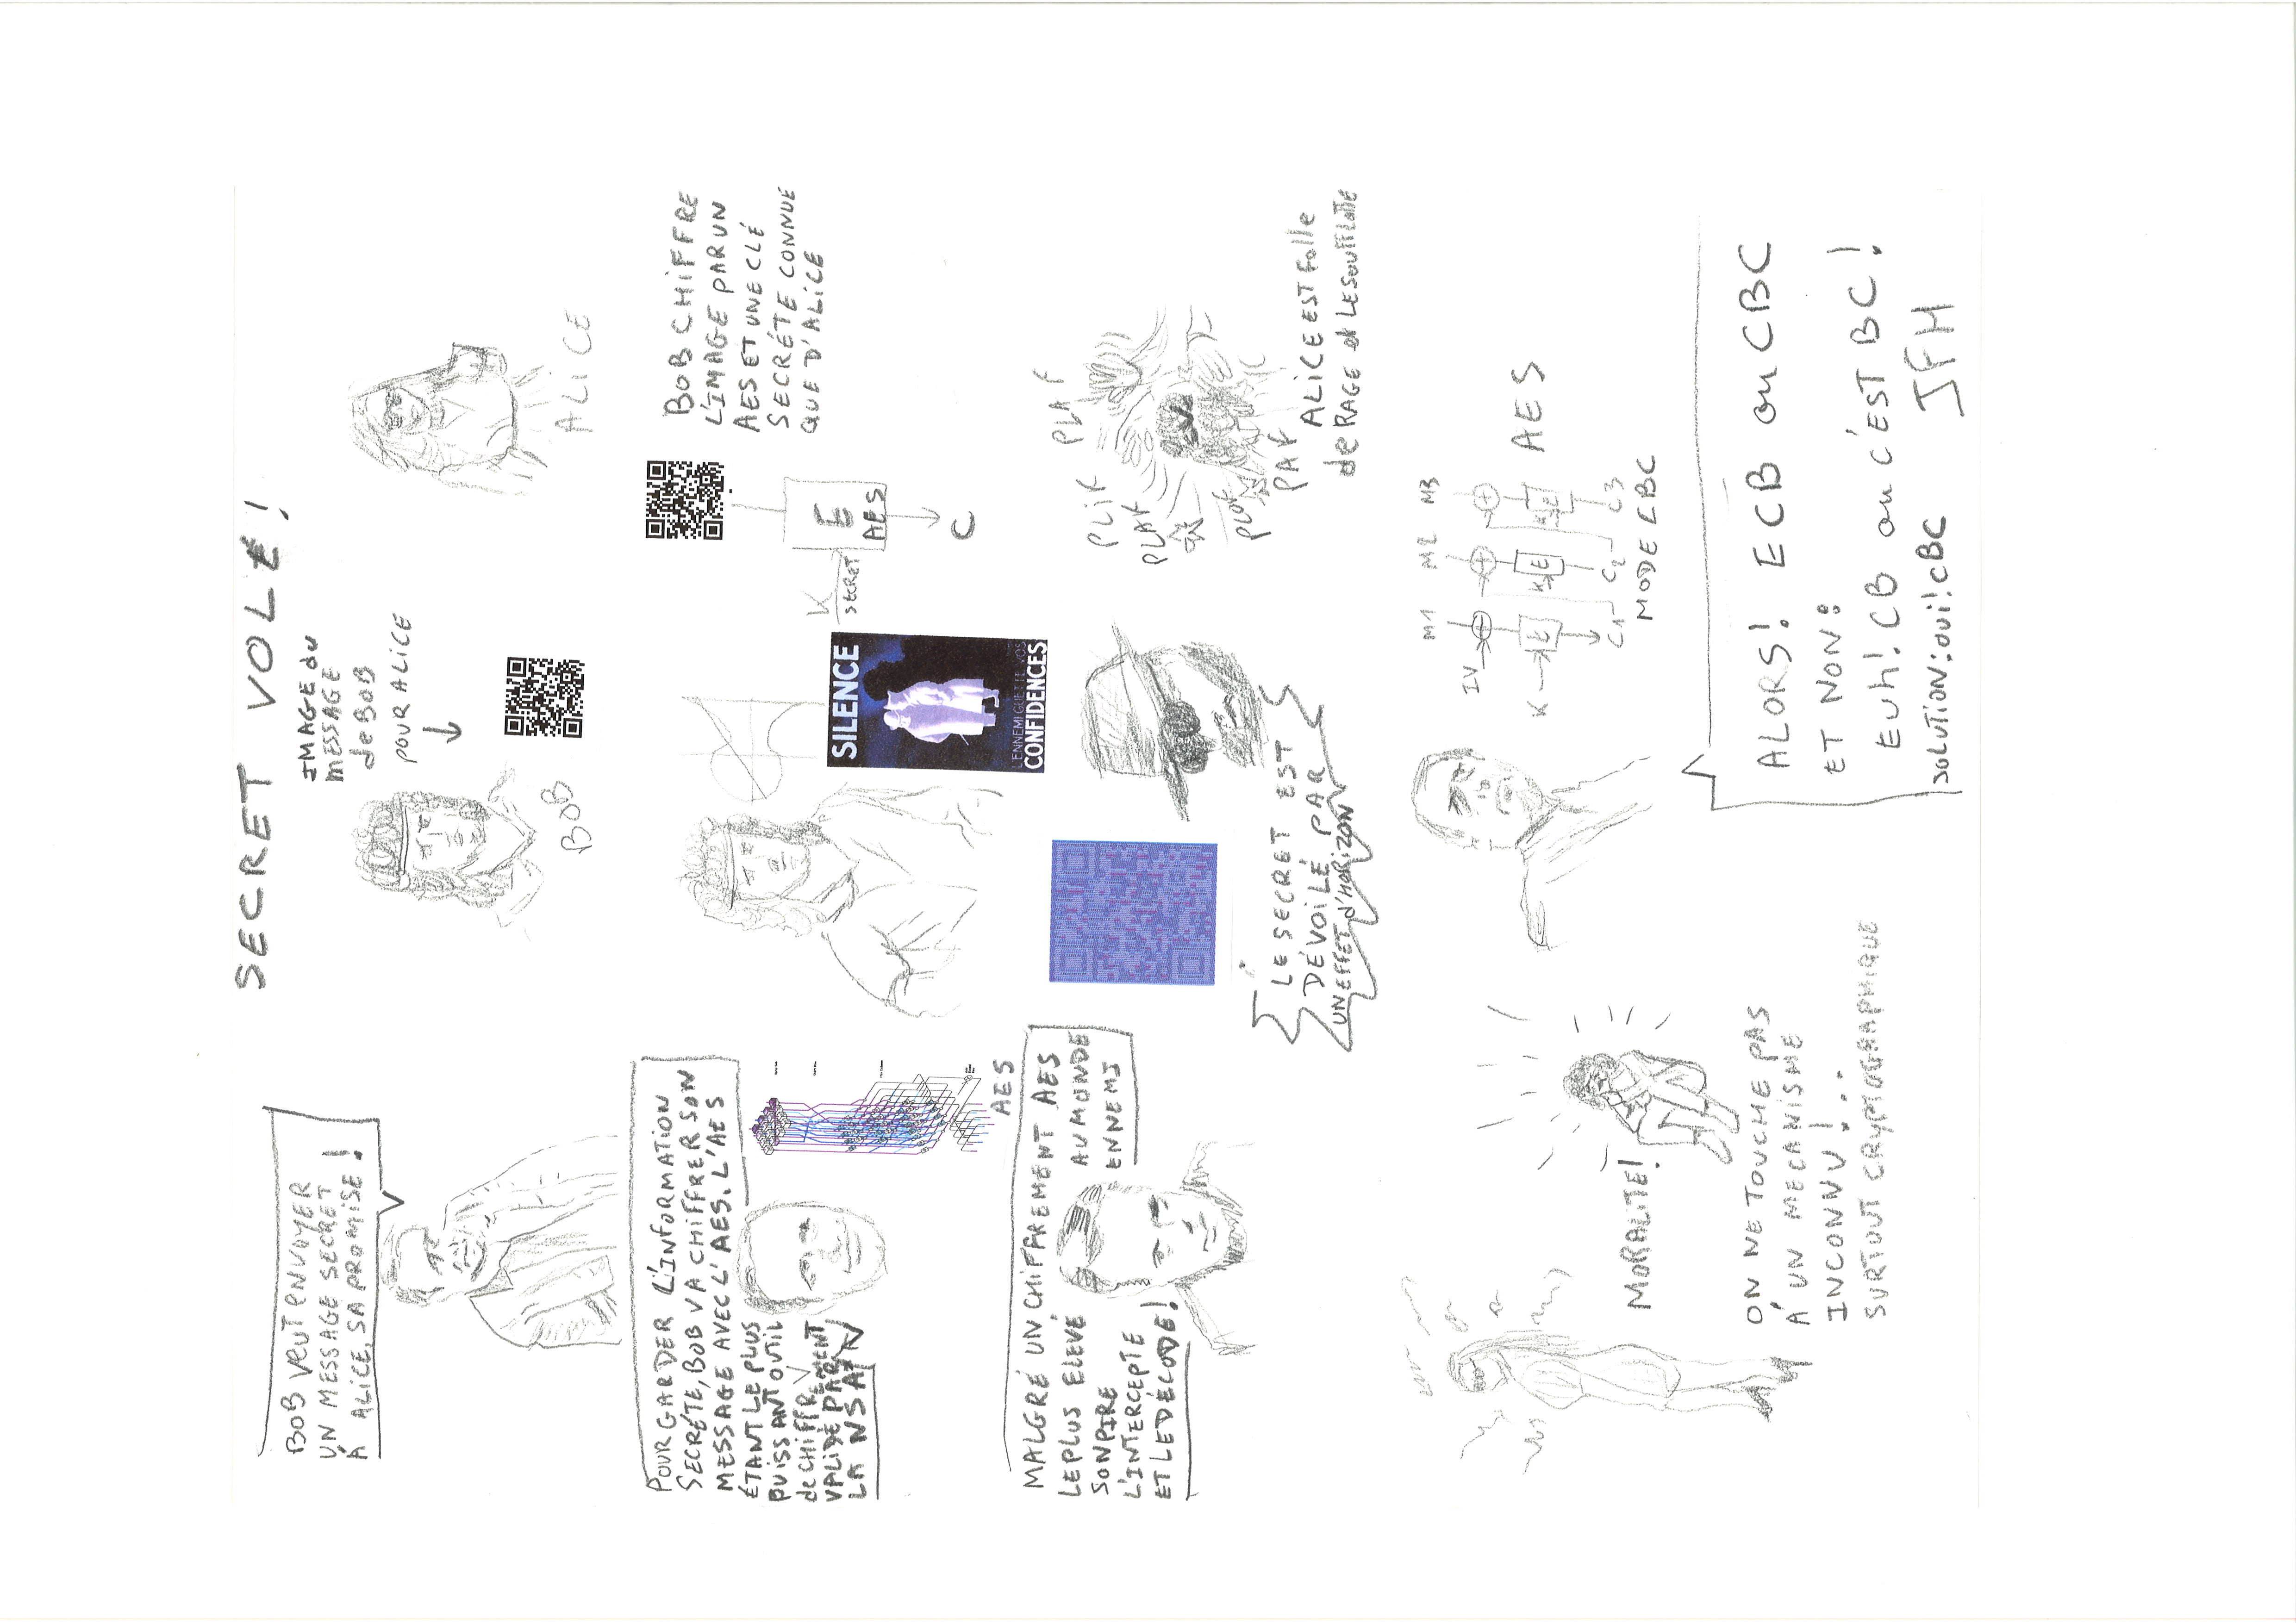 SECRET VOLÉ!
BOB VEUT ENVOYER
UN MESSAGE SECRET
À ALICE, SA PROMISE!
IMAGE du
MESSAGE
de BOB
POUR ALICE
BOB
ALICE
POUR GARDER L'INFORMATION
SECRÉTE, BOB VA CHIFFRER SON
MESSAGE AVEC L'AES. L'AES
ÉTANT LE PLUS
PUISSANT OUTIL
de CHIFFREMENT
VALIDÉ PAR
LA NSA
AES
SILENCE
L'ENNEMI GUETTE VOS
CONFIDENCES
K
SECRET
E
AES
C
BOB CHIFFRE
L'IMAGE PAR UN
AES ET UNE CLÉ
SECRÉTE CONNUE
QUE D'ALICE
MALGRÉ UN CHIFFREMENT AES
LE PLUS ELEVÉ AU MONDE
SON PIRE ENNEMI
L'INTERCEPTE
ET LE DÉCODE!
LE SECRET EST
DÉVOILÉ PAR
UN EFFET d'HORIZON
PLIK PLAK
PLAK
PLOK PAK
ALICE EST FOLLE
de RAGE et LE SOUFFLETTE
MORALITÉ!
ON NE TOUCHE PAS
À UN MECANISME
INCONNU!..
SURTOUT CRYPTOGRAPHIQUE
M1 M2 M3
IV
K E K E K E
C1 C2 C3
MODE CBC
AES
ALORS! ECB ou CBC
ET NON:
EUH! CB ou C'EST BC!
SOLUTION: OUI! CBC
JFH